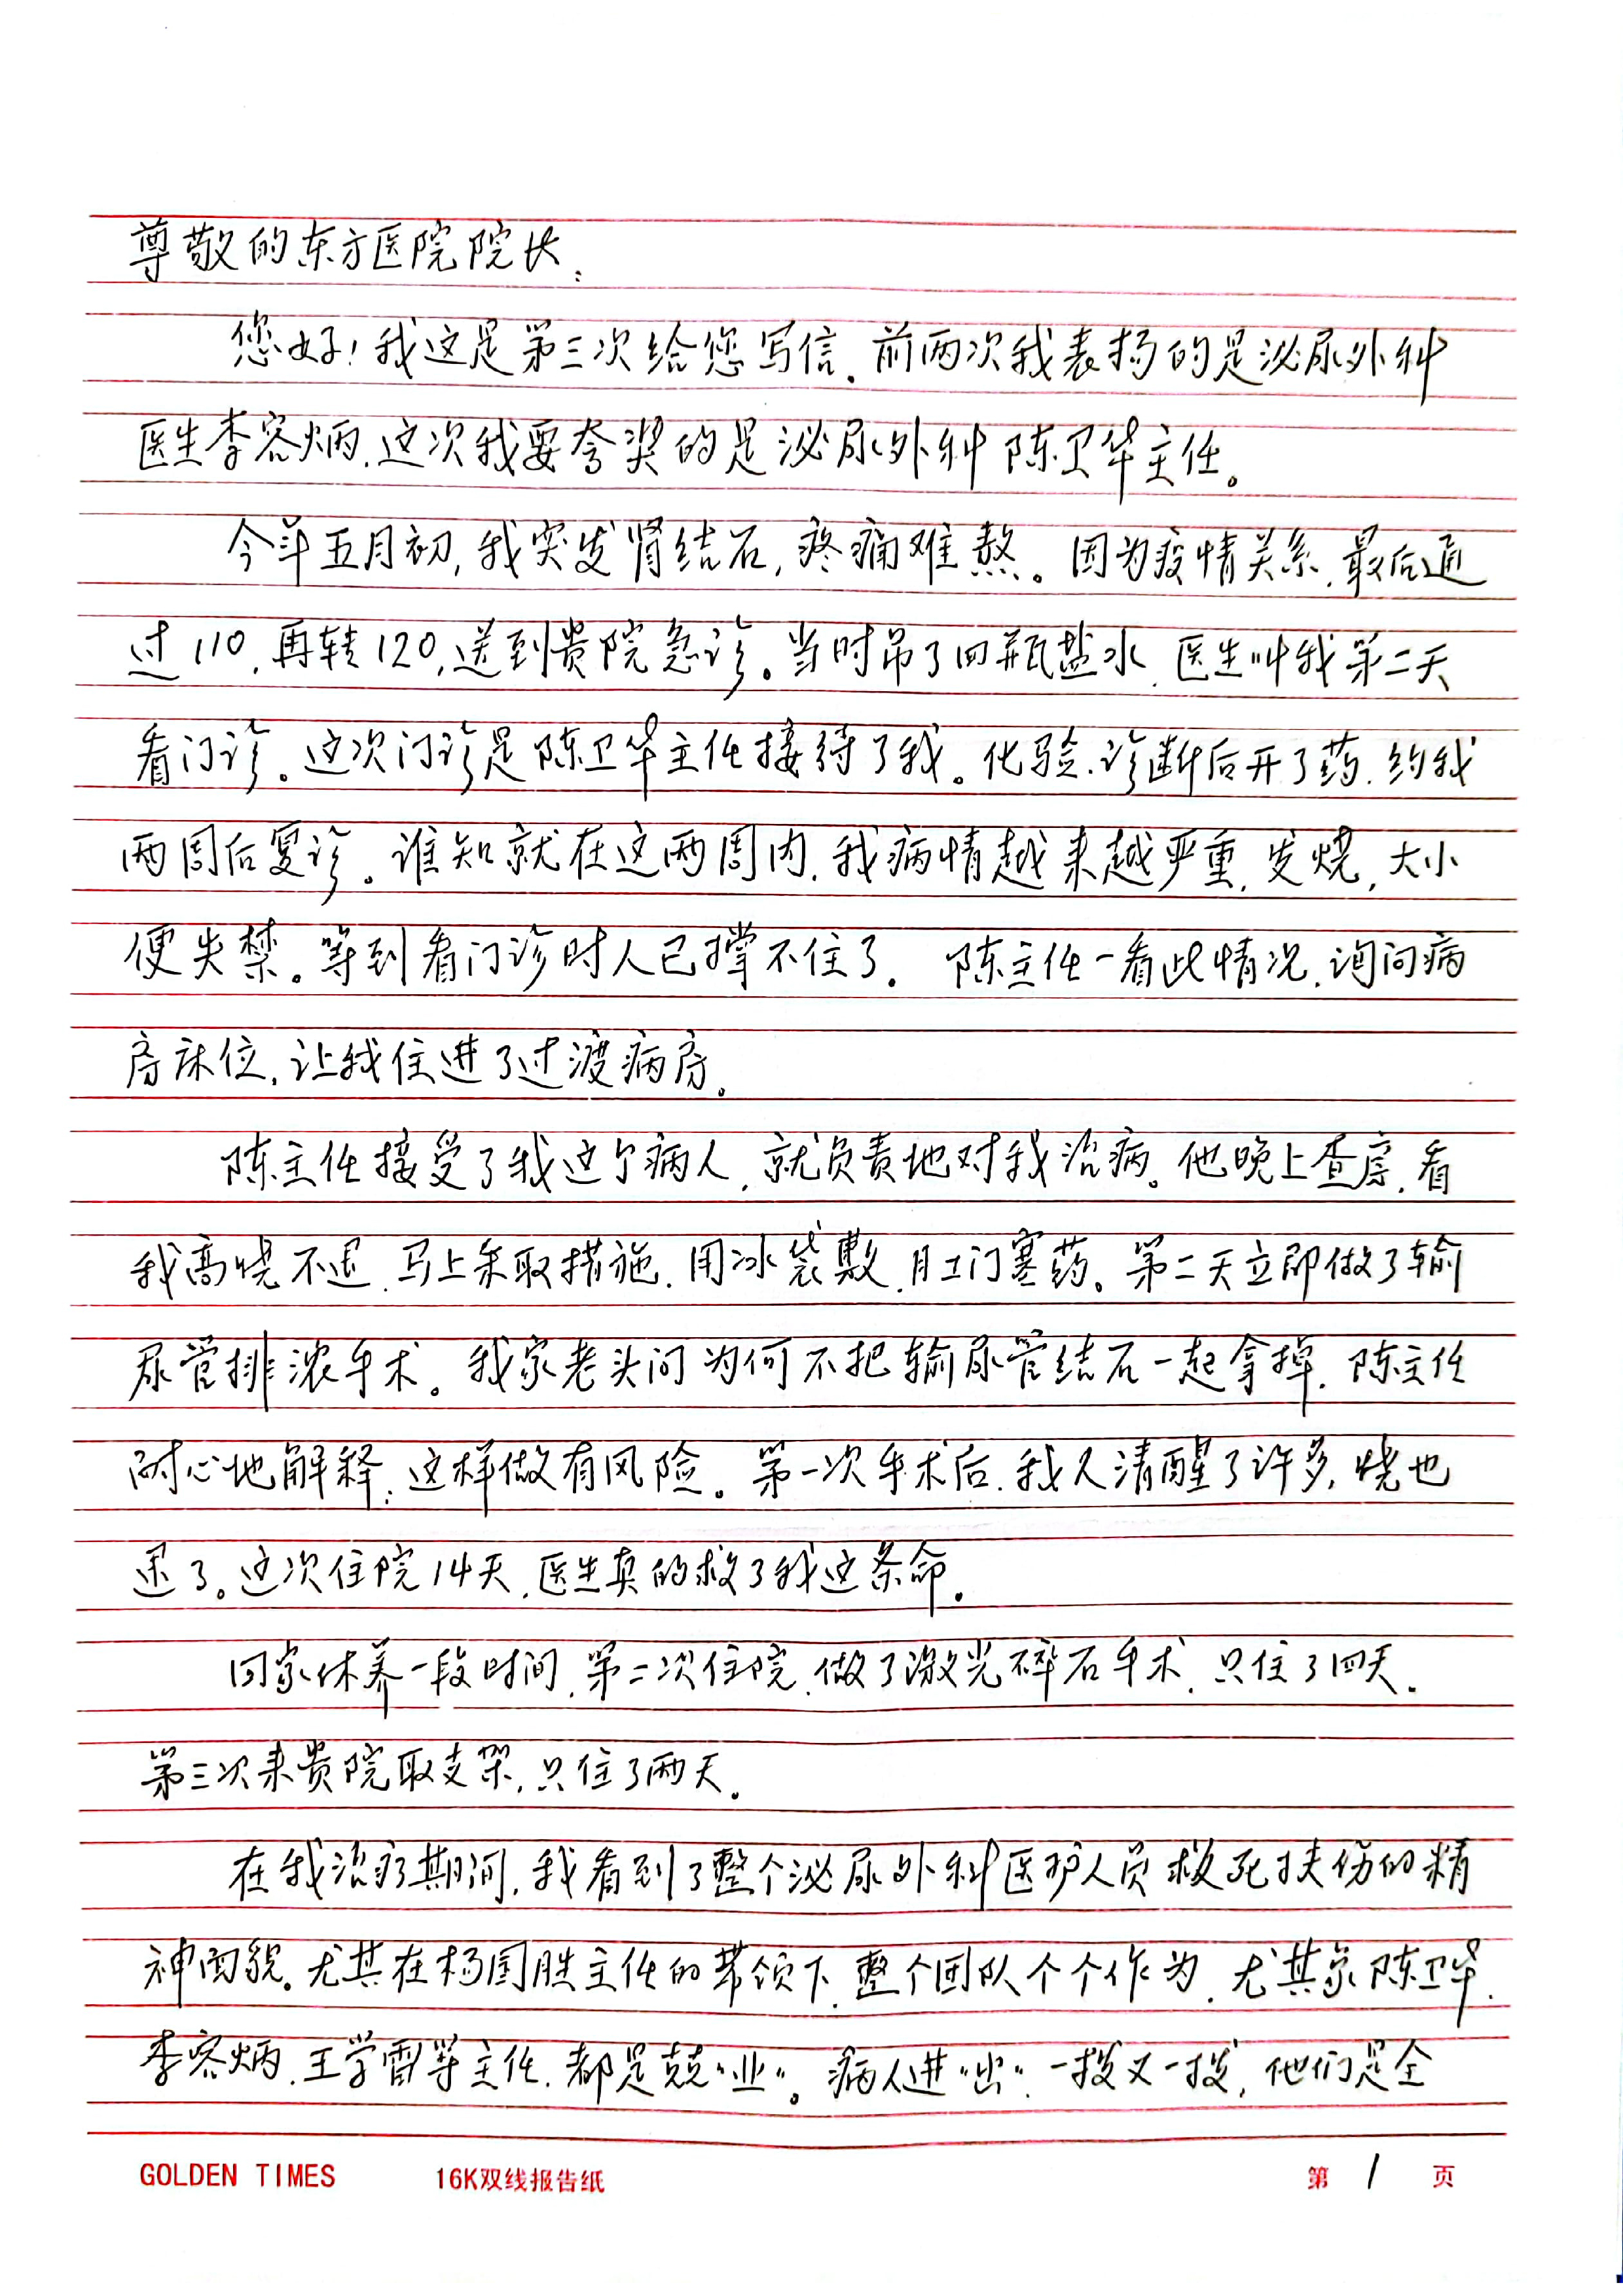 尊敬的东方医院院长:
您好!我这是第三次给您写信.前两次我表扬的是泌尿外科
医生李容炳.这次我要夸奖的是泌尿外科陈卫华主任。
今年五月初,我突发肾结石,疼痛难熬。因为疫情关系.最后通
过110,再转120,送到贵院急诊。当时吊了四瓶盐水.医生叫我第二天
看门诊。这次门诊是陈卫华主任接待了我。化验.诊断后开了药.约我
两周后复诊。谁知就在这两周内.我病情越来越严重,发烧,大小
便失禁。等到看门诊时人已撑不住了. 陈主任一看此情况.询问病
房床位,让我住进了过渡病房.
陈主任接受了我这个病人.就负责地对我治病。他晚上查房.看
我高烧不退.马上采取措施.用冰袋敷.肛门塞药。第二天立即做了输
尿管排浓手术。我家老头问为何不把输尿管结石一起拿掉.陈主任
耐心地解释:这样做有风险。第一次手术后.我人清醒了许多,烧也
退了。这次住院14天.医生真的救了我这条命.
回家休养一段时间.第二次住院.做了激光碎石手术.只住了四天.
第三次来贵院取支架,只住了两天.
在我治疗期间.我看到了整个泌尿外科医护人员救死扶伤的精
神面貌。尤其在杨国胜主任的带领下.整个团队个个作为.尤其象陈卫华.
李容炳.王学雷等主任.都是兢兢"业"。病人进"出".一拨又一拨,他们是全
GOLDEN TIMES 16K双线报告纸 第 1 页